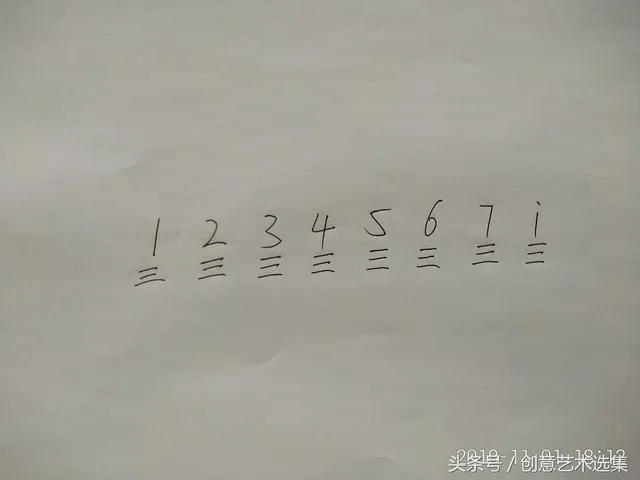 1 2 3 4 5 6 7 i
2019-11-01 18:12
头条号 / 创意艺术选集